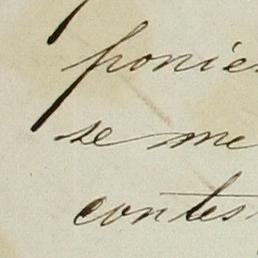 ponie
se me
contes